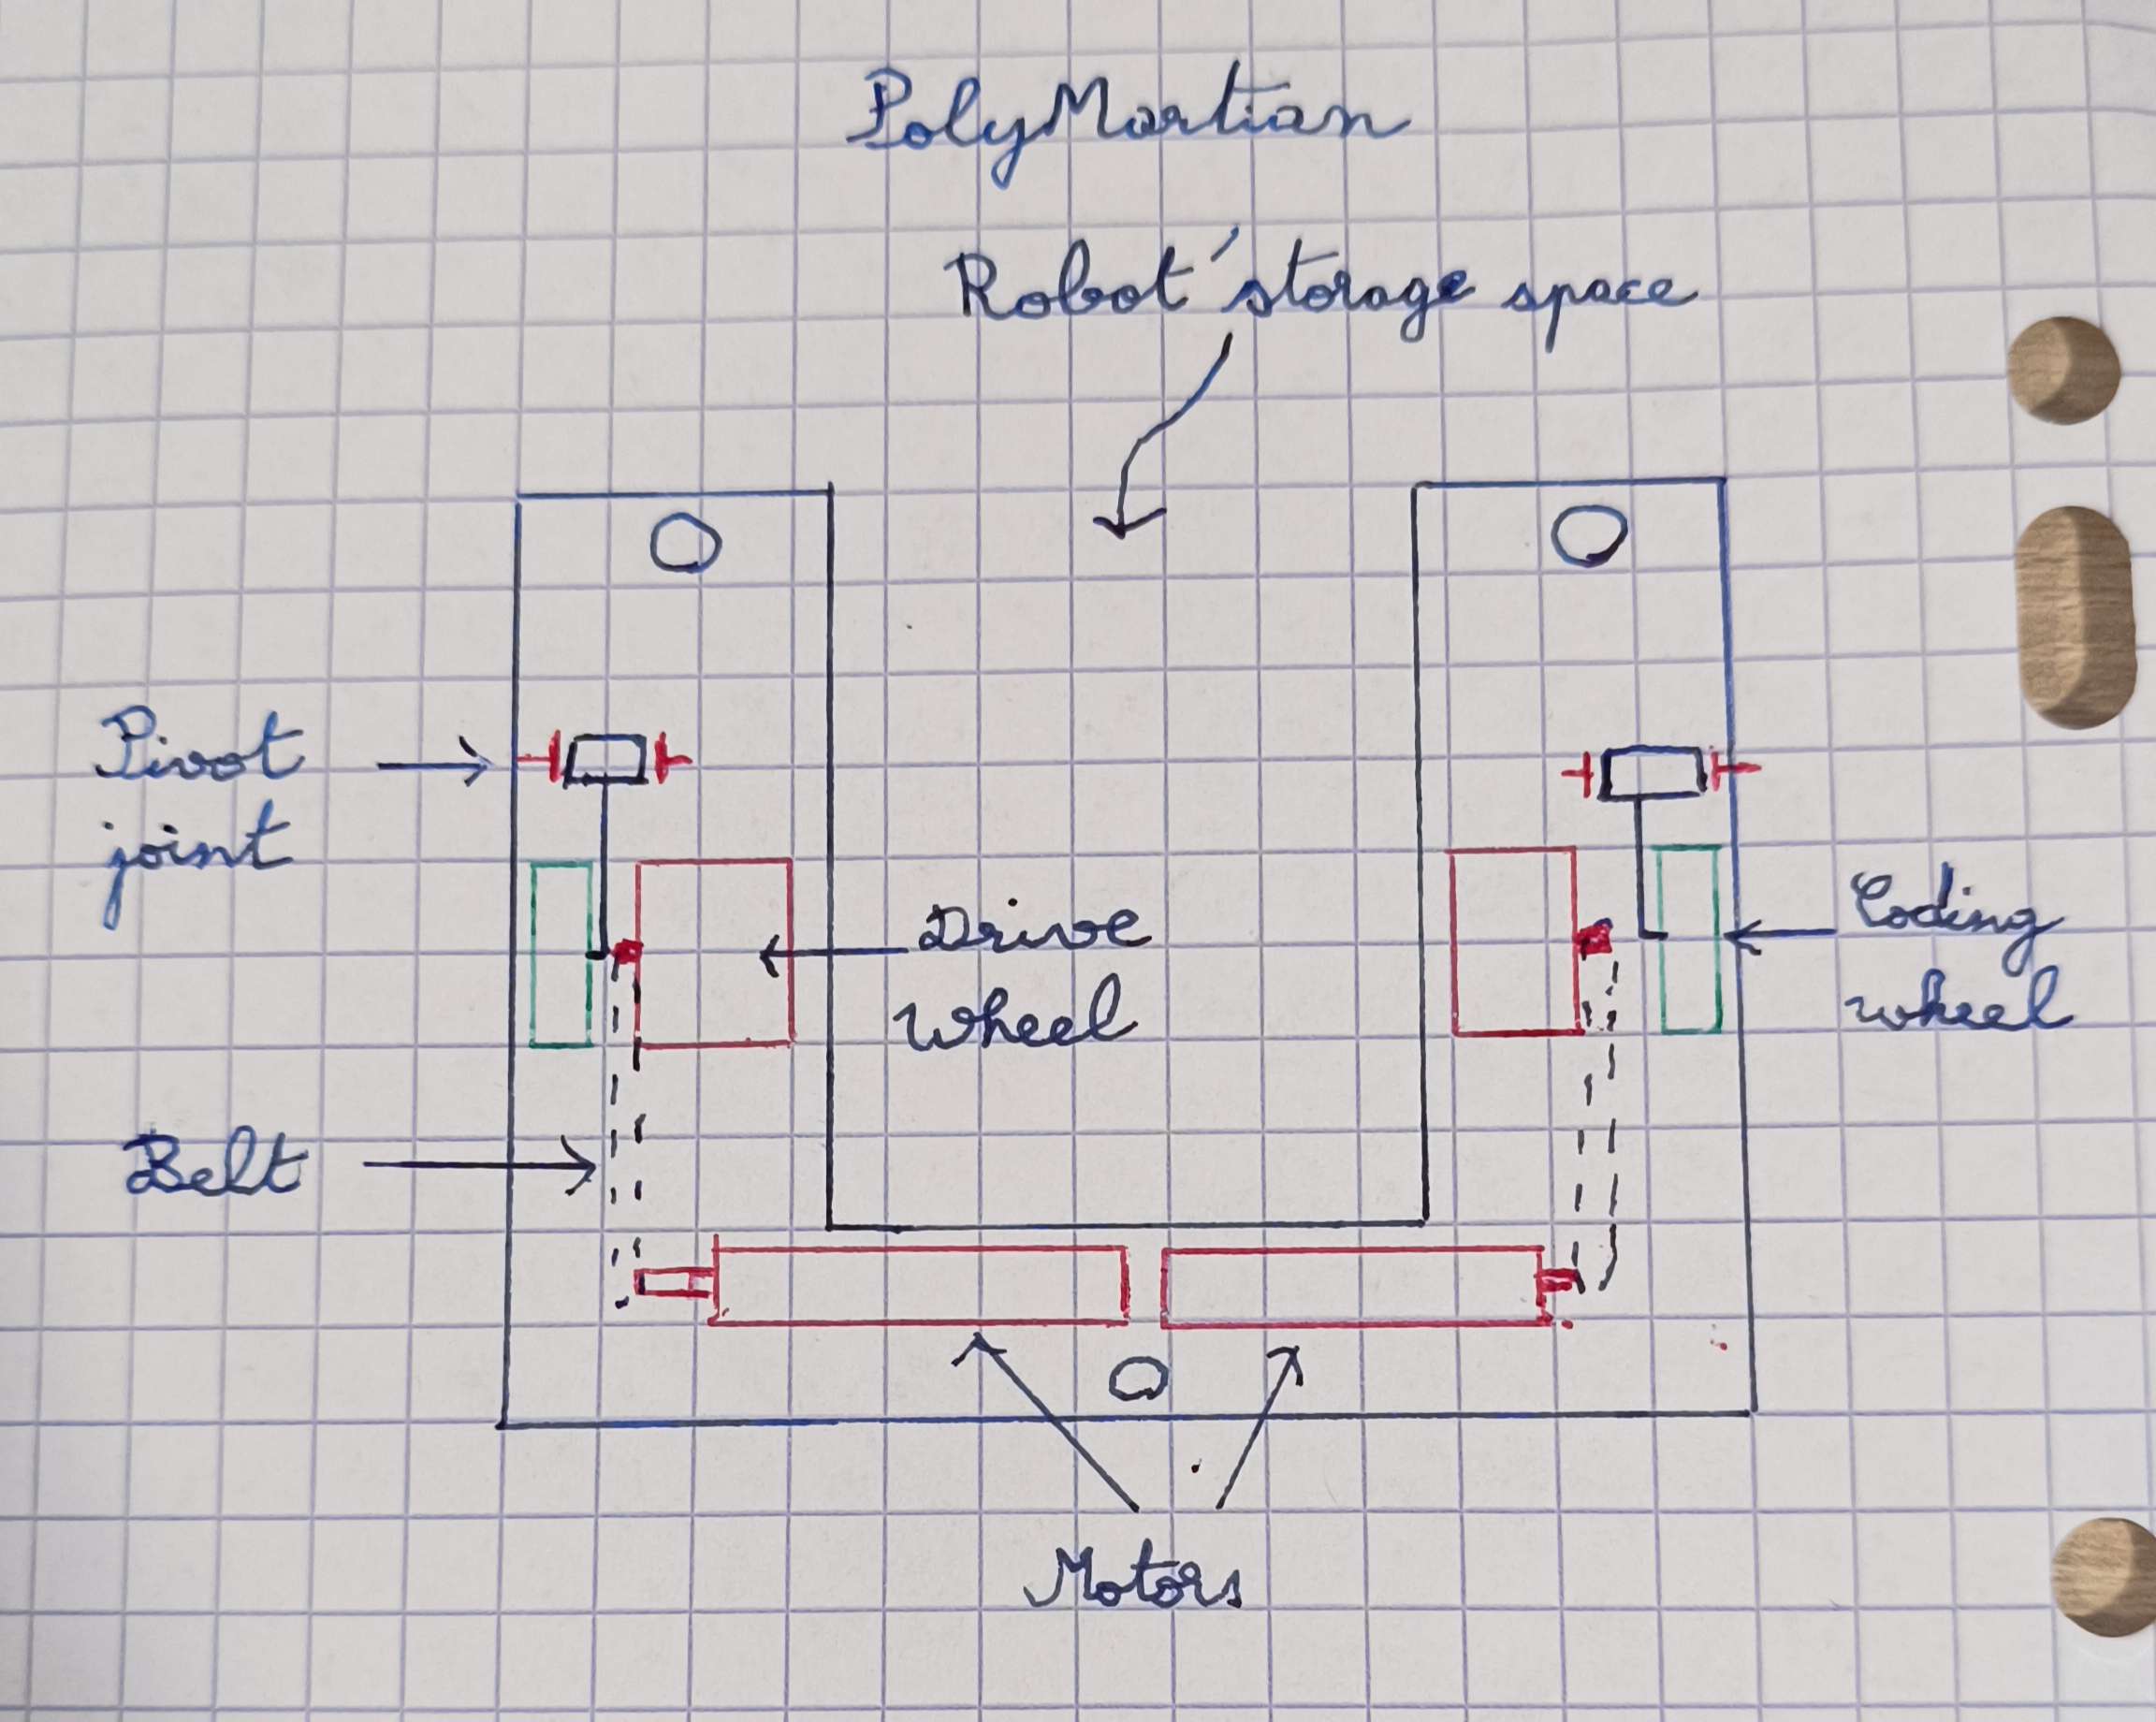 PolyMartian
Robot' storage space
Pivot
joint
Drive
wheel
Coding
wheel
Belt
Motors